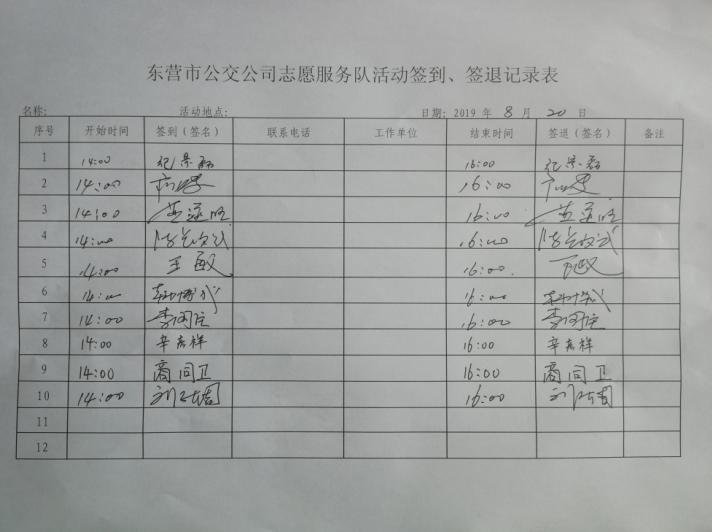 东营市公交公司志愿服务队活动签到、签退记录表
名称: 活动地点: 日期: 2019 年 8 月 20 日
序号 开始时间 签到(签名) 联系电话 工作单位 结束时间 签退(签名) 备注
1 14:00 纪景 16:00 纪景
2 14:00 16:00
3 14:00 16:00
4 14:00 16:00
5 14:00 王敏 16:00
6 14:00 16:00
7 14:00 李 16:00 李
8 14:00 辛志祥 16:00 辛志祥
9 14:00 商同卫 16:00 商同卫
10 14:00 刘 16:00 刘
11
12